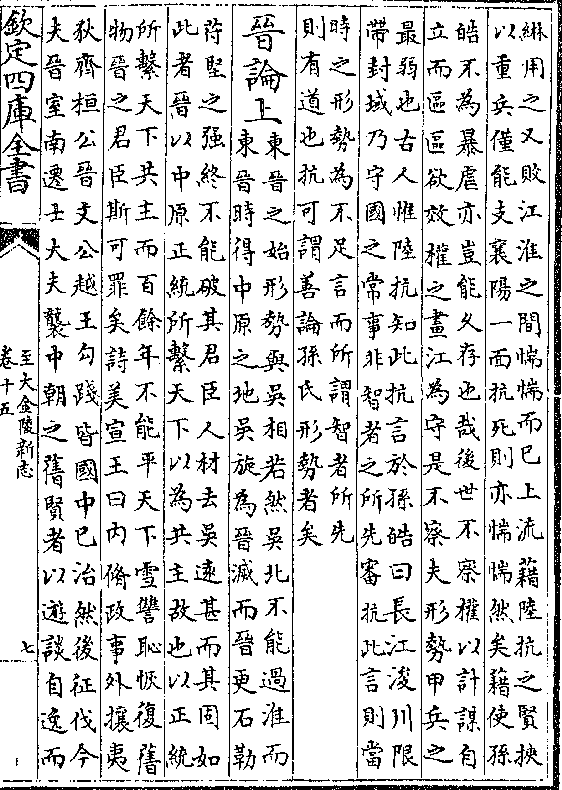 綝用之又敗江淮之間惴惴而已上流藉陸抗之賢挾
以重兵僅能支襄陽一面抗死則亦惴惴然矣藉使孫
皓不為暴虐亦豈能久存也哉後世不察權以計謀自
立而區區欲效權之畫江為守是不察夫形勢甲兵之
最弱也古人惟陸抗知此抗言於孫皓曰長江浚川限
帶封域乃守國之常事非智者之所先審抗此言則當
時之形勢為不足言而所謂智者所先
則有道也抗可謂善論孫氏形勢者矣
晉論上
東晉之始形勢與吳相若然吳北不能過淮而
東晉時得中原之地吳旋為晉滅而晉更石勒
苻堅之强終不能破其君臣人材去吳遠甚而其固如
此者晉以中原正統所繫天下以為共主故也以正統
所繫天下共主而百餘年不能平天下雪讐恥恢復舊
物晉之君臣斯可罪矣詩美宣王曰內脩政事外攘夷
狄齊桓公晉文公越王勾踐皆國中已治然後征伐今
夫晉室南遷士大夫襲中朝之舊賢者以遊談自逸而
欽定四庫全書
至大金陵新志
卷十五
七